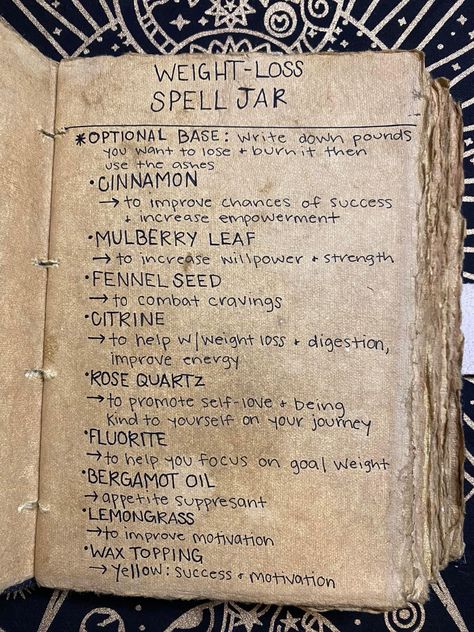 WEIGHT-LOSS
SPELL JAR
*OPTIONAL BASE: write down pounds
you want to lose + burn it then
use the ashes
•CINNAMON
→ to improve chances of success
+ increase empowerment
•MULBERRY LEAF
→ to increase willpower + strength
•FENNEL SEED
→ to combat cravings
•CITRINE
→ to help w/weight loss + digestion,
improve energy
•ROSE QUARTZ
→ to promote self-love + being
kind to yourself on your journey
•FLUORITE
→ to help you focus on goal weight
•BERGAMOT OIL
→ appetite suppresant
•LEMONGRASS
→ to improve motivation
•WAX TOPPING
→ Yellow: success + motivation